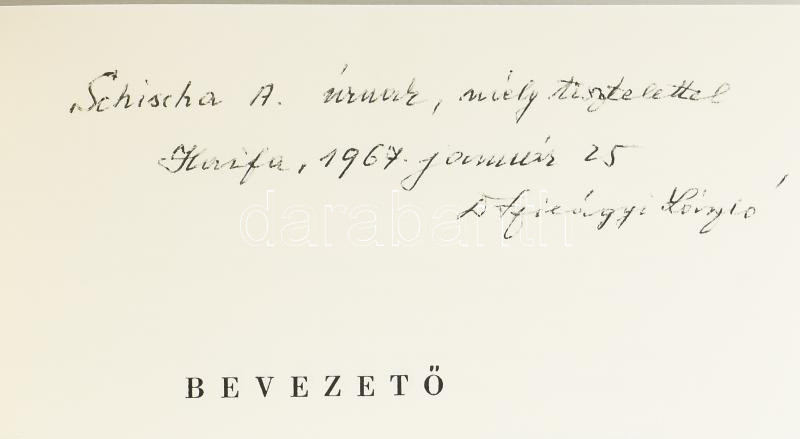 Schischa A. úrnak, mély tisztelettel
Haifa, 1967. január 25
László
darabanth
BEVEZETŐ